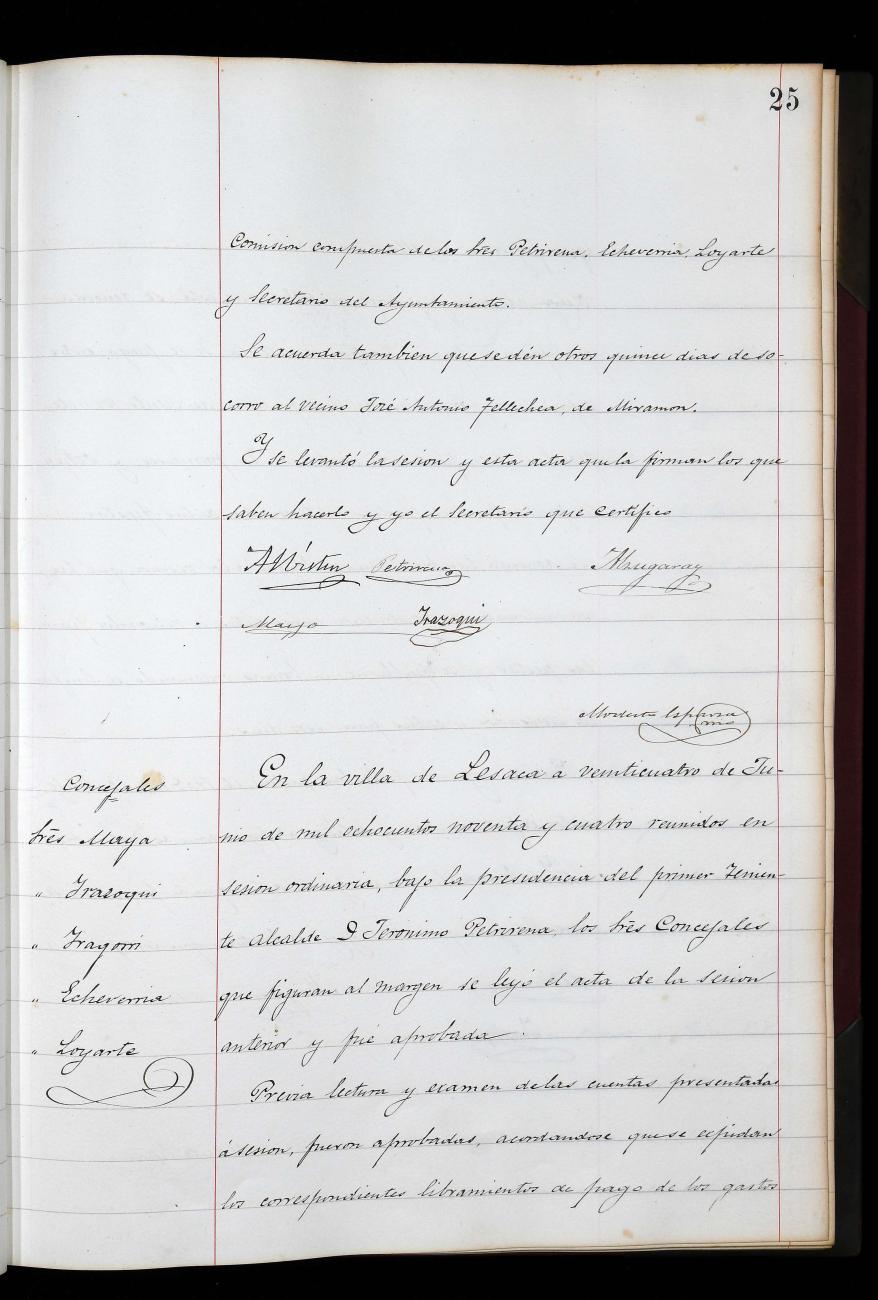 25
Comision compuesta de los Sres Petrirena, Echeverria, Loyarte
y Secretario del Ayuntamiento.
Se acuerda tambien que se dén otros quince dias de so-
corro al vecino José Antonio Tellechea, de Miramon.
Y se levantó la sesion y esta acta que la firman los que
saben hacerlo y yo el Secretario que certifico
Petrirena
Maya Irazoqui
Modesto Esparza
Concejales
Sres Maya
" Irazoqui
" Iragorri
" Echeverria
" Loyarte
En la villa de Lesaca a veinticuatro de Ju-
nio de mil ochocientos noventa y cuatro reunidos en
sesion ordinaria, bajo la presidencia del primer Tenien-
te Alcalde D Jeronimo Petrirena, los Sres Concejales
que figuran al margen se leyó el acta de la sesion
anterior y fué aprobada.
Previa lectura y examen de las cuentas presentadas
á sesion, fueron aprobadas, acordandose que se expidan
los correspondientes libramientos de pago de los gastos